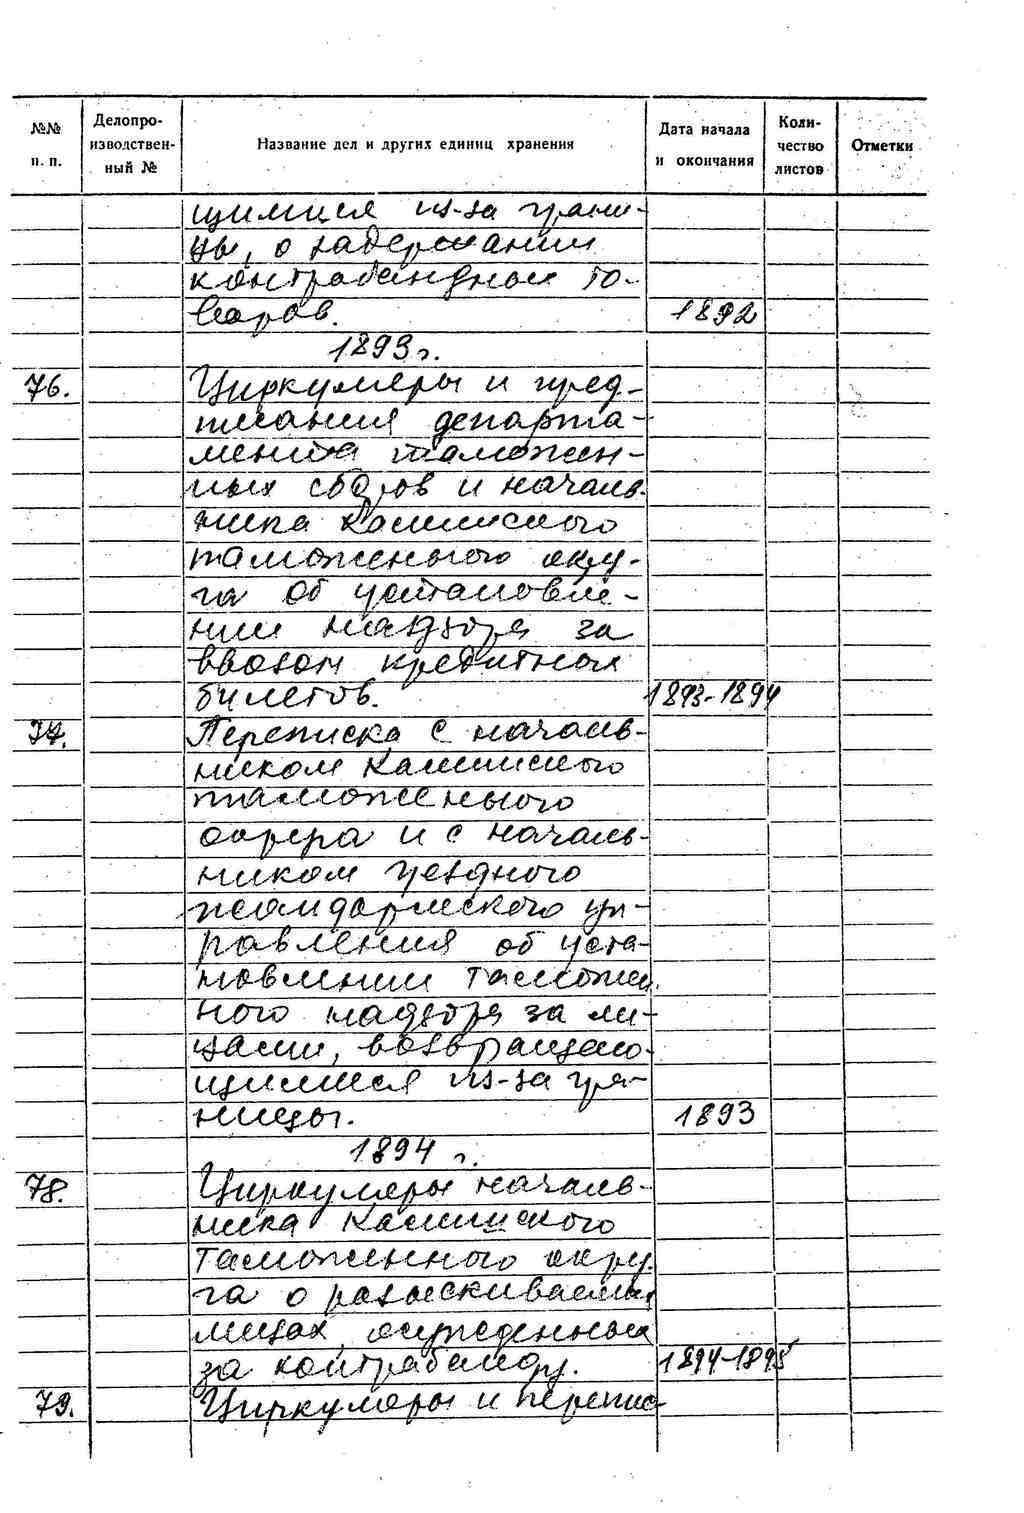 №№ п. п. Делопроизводствен-ный № Название дел и других единиц хранения Дата начала и окончания Коли-чество листов Отметки
щимися из-за грани-
цы, о задержании
контрабандных то-
варов. 1892
1893 г.
76. Циркуляры и пред-
писания департа-
мента таможен-
ных сборов и началь-
ника Калишского
таможенного окру-
га об установле-
нии надзора за
ввозом кредитных
билетов. 1893-1894
77. Переписка с началь-
ником Калишского
таможенного
округа и с началь-
ником уездного
жандармского уп-
равления об уста-
новлении таможен.
ного надзора за ли-
цами, возвращаю-
щимися из-за гра-
ницы. 1893
1894 г.
78. Циркуляры началь-
ника Калишского
таможенного окру.
га о разыскиваемых
лицах, осужденных
за контрабанду. 1894-1895
79. Циркуляры и перепис-